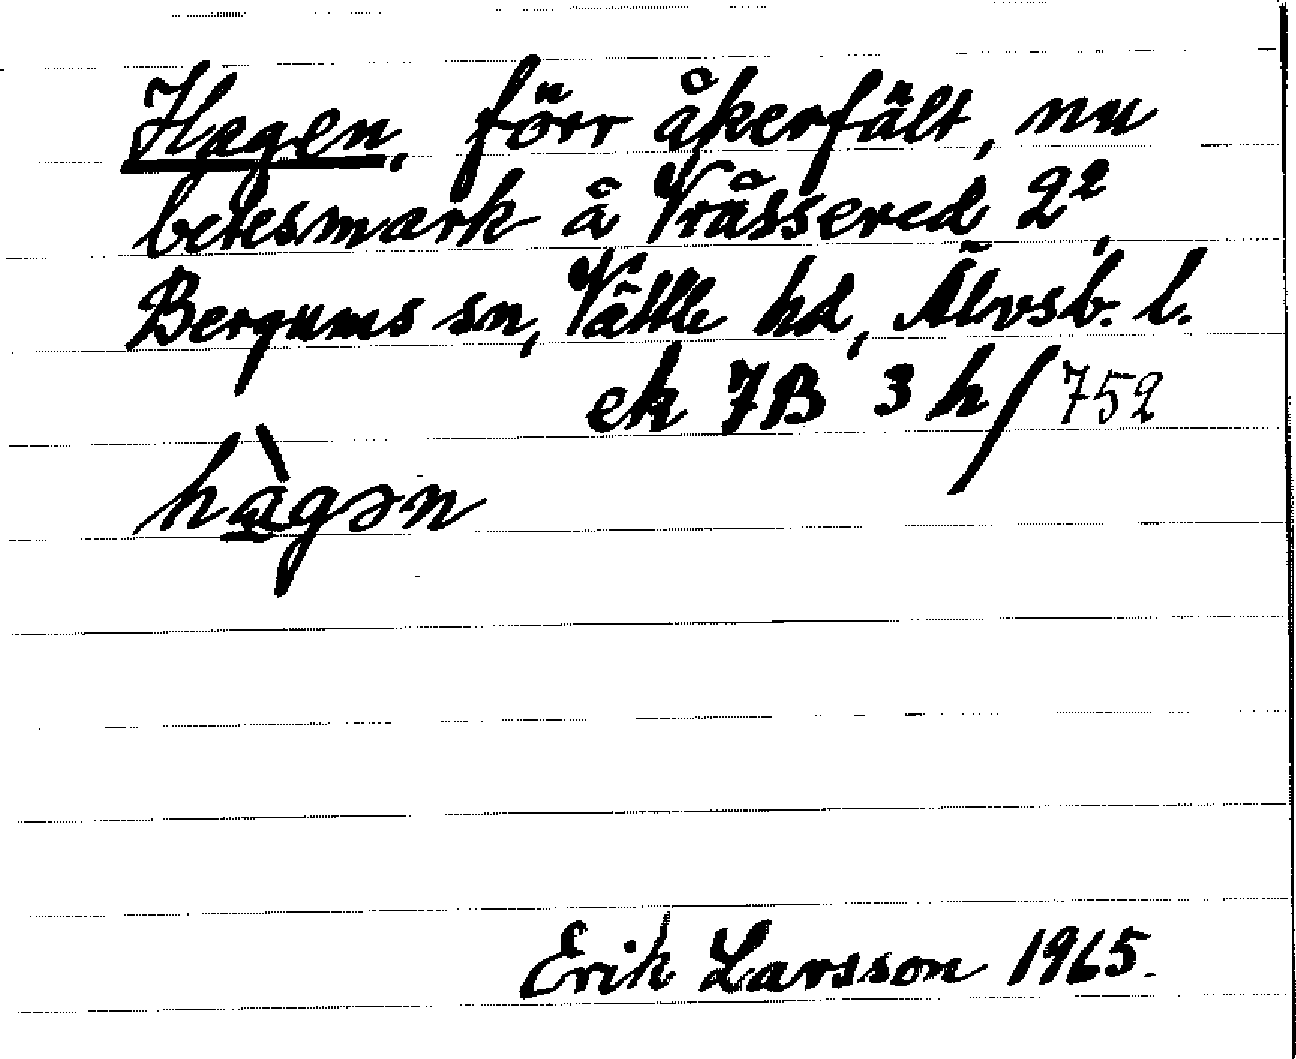 Hagen, förr åkerfält, nu
betesmark å Vråssered 2²,
Bergums sn, Vättle hd, Älvsb. l.
ek 7B 3 h/752
hàgən
Erik Larsson 1965.